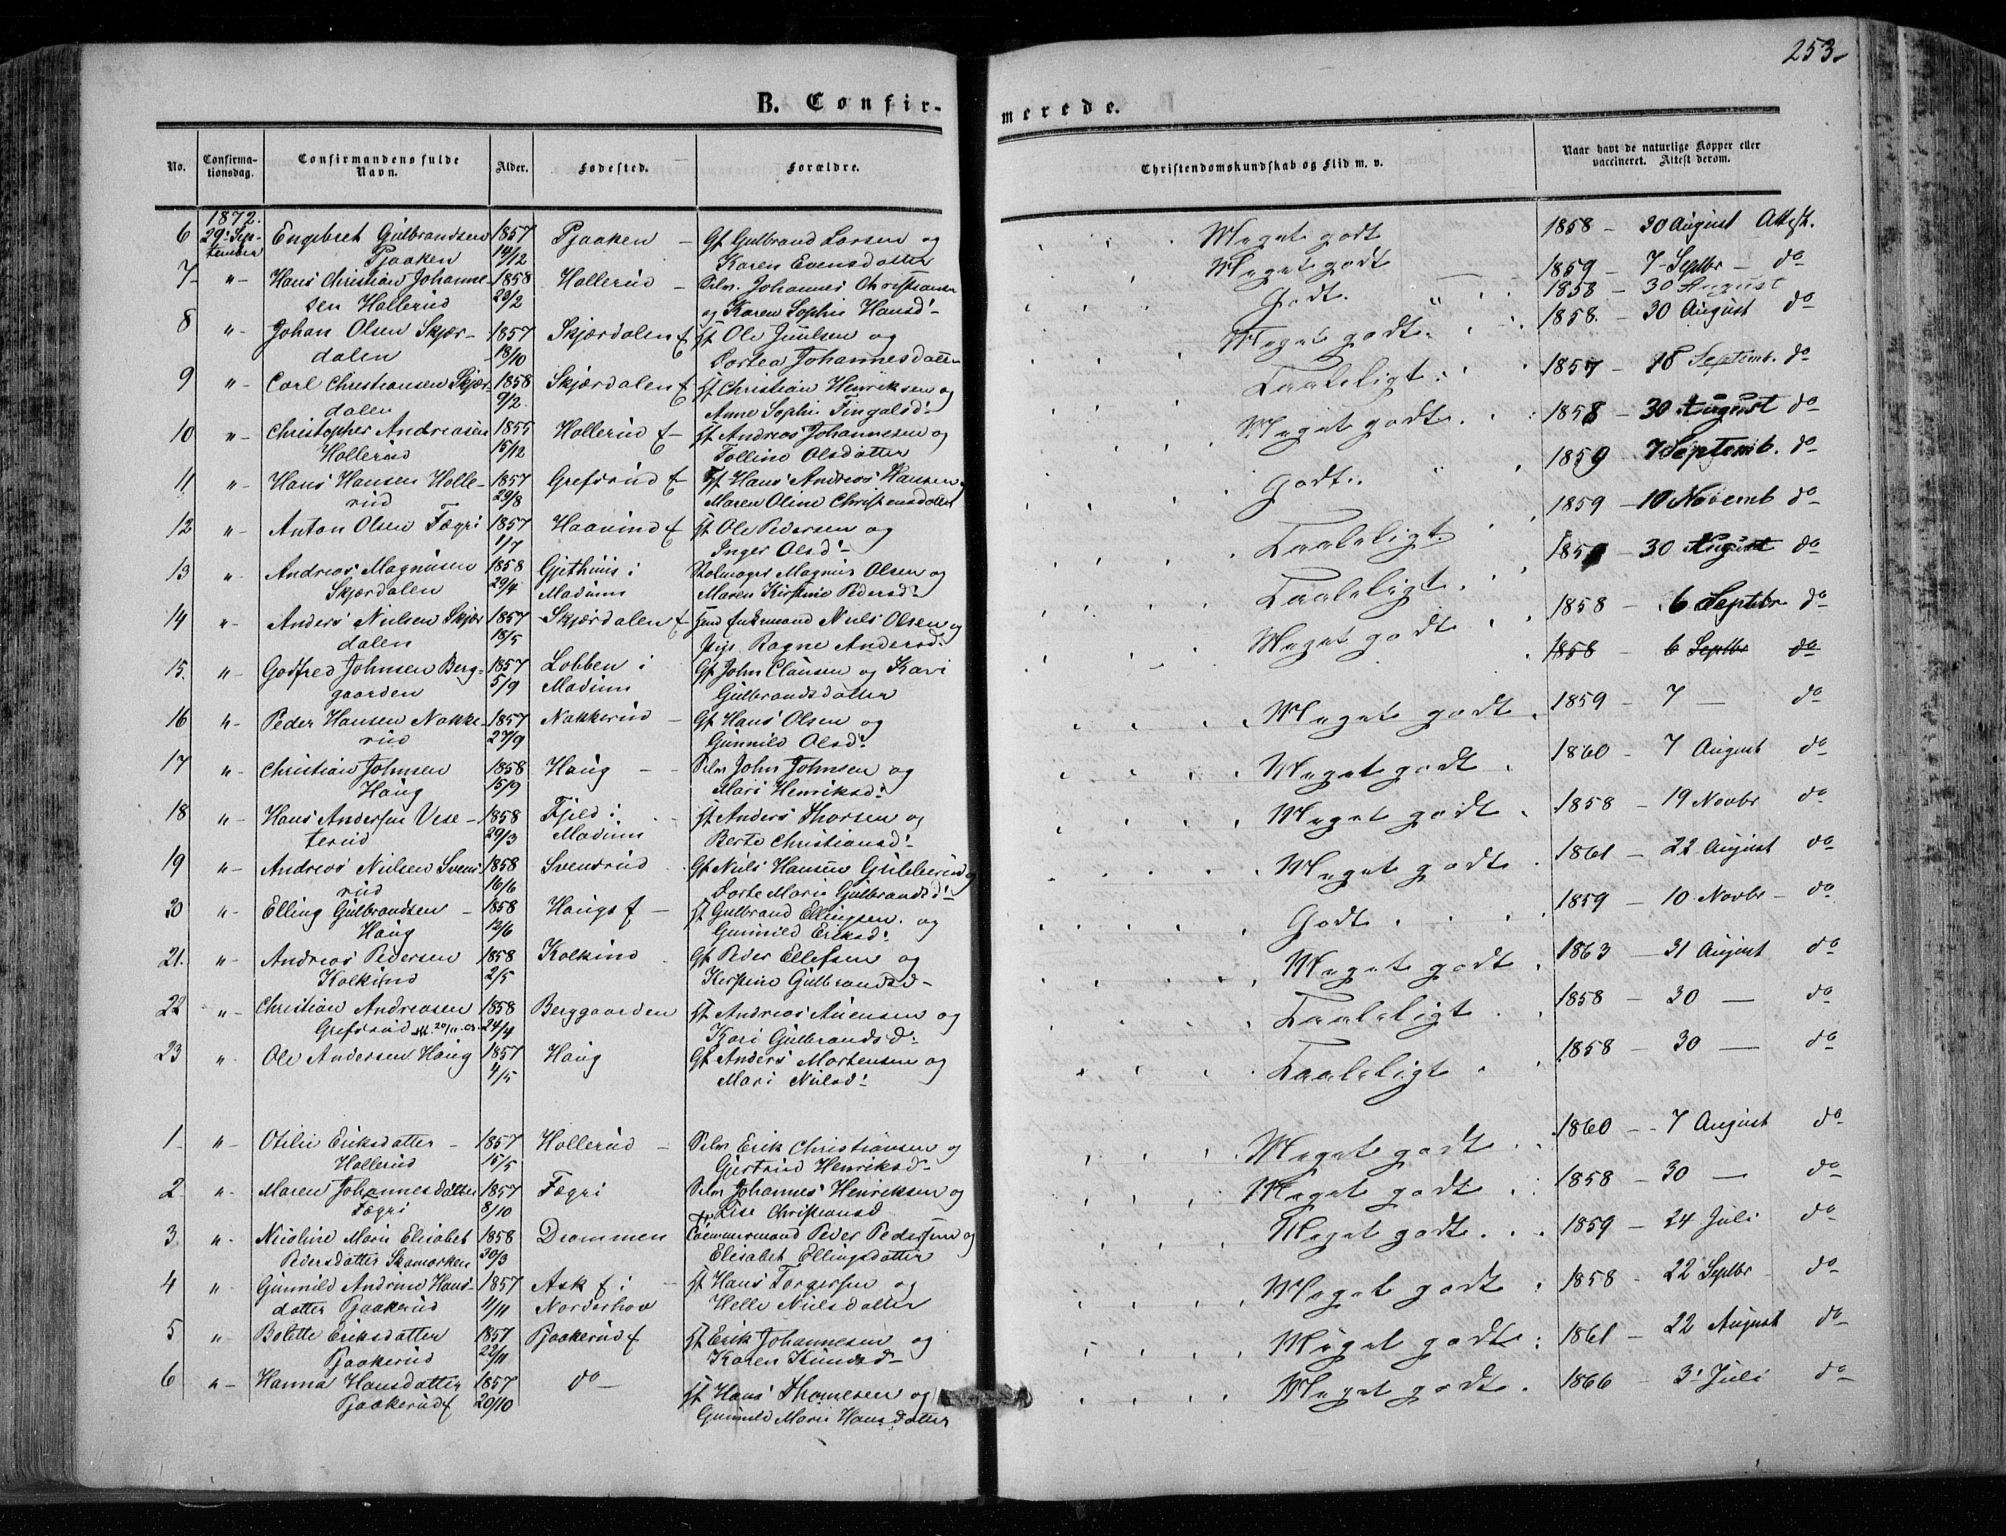 253.
B. Confir-
merede.
No.
Confirma-
tionsdag.
Confirmandens fulde
Navn.
Alder.
Fødested.
Forældre.
Christendomskundskab og Flid m. v.
Naar havt de naturlige Kopper eller
vaccineret. Attest derom.
1872.
6 29' Sep- Engebret Gulbrandsen 1857 Pjaaken - Gf Gulbrand Larsen og Meget godt 1858 - 30 August Attest.
tember Pjaaken 14/12 Karen Evensdatter
7 " Hans Christian Johanne- 1858 Hollerud - Selv. Johannes Christiansen Meget godt 1859 - 7 Septbr - do
sen Hollerud 23/2 og Karen Sophie Hansd: 1858 - 30 August
8 " Johan Olsen Skjær- 1857 Skjærdalen f st Ole Juulsen og Godt. 1858 - 30 August do
dalen 18/10 Dortea Johannesdatter Meget godt
9 " Carl Christiansen Skjær- 1858 Skjærdalen f st Christian Henriksen og Taaleligt 1857 - 18 Septemb. do
dalen 9/2 Anne Sophie Fingalsd:
10 " Christopher Andreasen 1855 Hollerud f st Andreas Johannesen og Meget godt 1858 - 30 August do
Hollerud 15/12 Olsdatter
11 " Hans Hansen Holle- 1857 Grefsrud f Hans Andreas Hansen Godt 1859 7 Septemb. do
rud 29/8 Maren Oline Christensdatter
12 " Anton Olsen Fægri 1857 Haavind f st Ole Pedersen og Taaleligt 1859 - 10 Novemb do
1/7 Inger Olsd:
13 " Andreas Magnusen 1858 Gjethuus i Magnus Olsen og Taaleligt 30 August do
Skjærdalen 29/4 Modum Maren Kirstine Pedersd:
14 " Anders Nielsen Skjær- 1857 Skjærdalen f Niels Olsen og Meget godt 1858 - 6 Septbr do
dalen 18/5 Ragne Andersd: 1858 6 Septbr do
15. " Godfred Johnsen Berg- 1857 Lobben i Gf John Clausen og Kari Meget godt 1859 - 7 - do
gaarden 5/9 Modum Gulbrandsdatter
16 " Peder Hansen Nakke- 1857 Nakkerud - Gf Hans Olsen og Meget godt 1860 - 7 August do
rud 27/9 Gunnild Olsd:
17 " Christian Johnsen 1858 Haug - Selv John Johnsen og Meget godt 1858 - 19 Novbr do
Haug 15/9 Mari Henriksd:
18 " Hans Andersen Vese- 1858 Fjeld i st Anders Thorsen og Meget godt 1861 - 22 August do
terud 29/3 Modum Berte Christiansd:
19 " Andreas Nielsen Svens- 1858 Svensrud Gf Niels Hansen Gulleierud og Godt 1859 - 10 Novbr - do
rud 16/6 Dorte Marie Gulbrandsd:
20 " Elling Gulbrandsen - 1858 Haugs f - st Gulbrand Ellingsen og
Haug 12/6 Gunnild Eriksd:
21. " Andreas Pedersen 1858 Kolkind Gf Peder Ellefsen og Meget godt 1863 - 31 August do
Kolkind 2/5 Kirstine Gulbrandsd-
22 " Christian Andreasen 1858 Berggaarden st Andreas og Taaleligt 1858 - 30 - do
Grefsrud 24/4 Kari Gulbrandsd:
23 " Ole Andersen Haug 1857 Haug Gf Anders Mortensen og Taaleligt 1858 - 30 - do
4/5 Mari Nielsd:
1 " Otilie Eriksdatter - 1857 Hollerud - Selv Erik Christiansen og Meget godt 1860 - 7 August do
Hollerud 15/5 Gjertrud Henriksd:
2. " Maren Johannesdatter 1857 Fægri Selv Johannes Henriksen og Meget godt 1858 - 30 - do
Fægri 8/10 Lise Christiansd
3. " Nicoline Marie Elisabet 1858 Drammen Peder Pedersen og Meget godt 1859 - 24 Juli do
Pedersdatter Skamarken 30/3 Elisabet Ellingsdatter
4 " Gunnild Andrine Hans- 1857 Ask f i - st Hans Torgersen og Meget godt 1858 - 22 Septbr do
datter Pjaakerud 4/11 Norderhov Helle Nielsdatter
5 " Bolette Eriksdatter 1857 Pjaakerud f st Erik Johannesen og Meget godt 1861 - 22 August do
Pjaakerud 22/11 Karen Knudsd-
6 " Hanna Hansdatter 1857 do - st Hans Thomesen og Meget godt 1866 - 3' Juli do
Pjaakerud f 20/10 Gunnild Marie Hansdatter